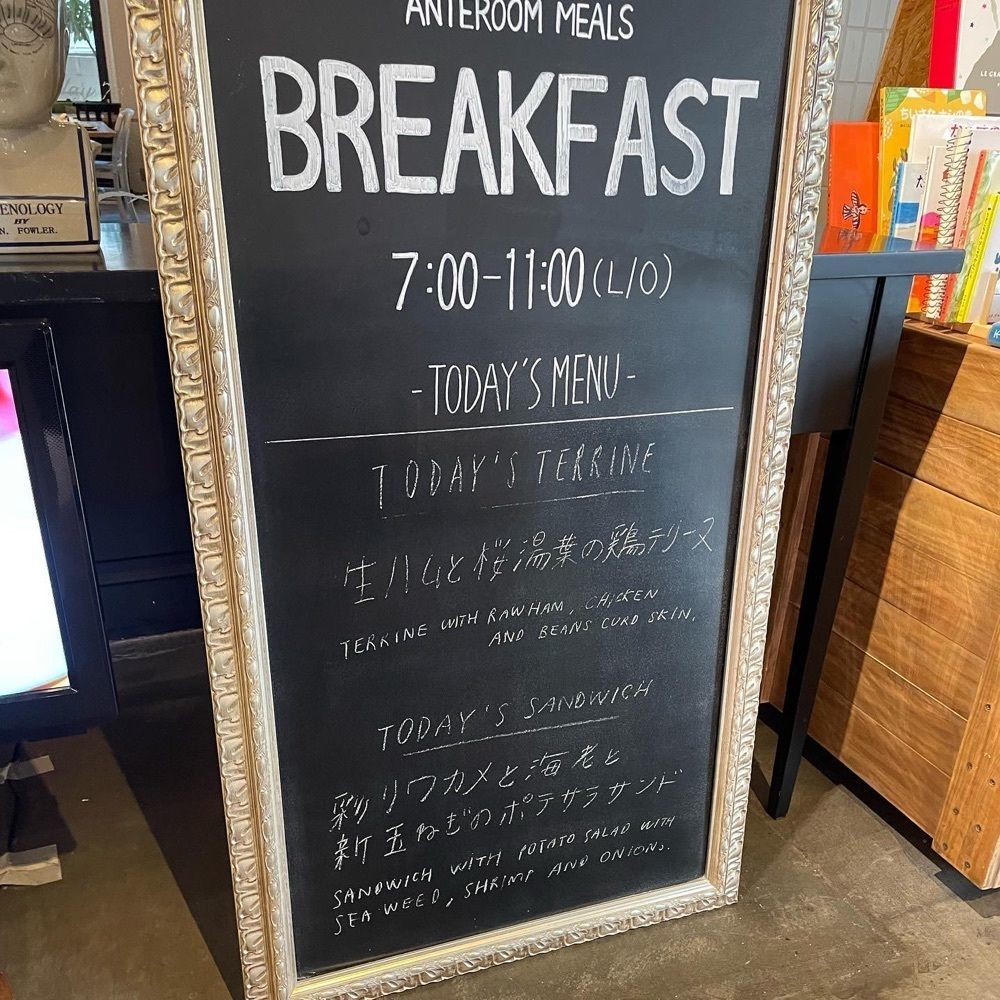 ANTEROOM MEALS
BREAKFAST
7:00-11:00 (L/O)
-TODAY'S MENU-
TODAY'S TERRINE
生ハムと桜湯葉の鶏テリーヌ
TERRINE WITH RAWHAM, CHICKEN
AND BEANS CURD SKIN.
TODAY'S SANDWICH
彩りワカメと海老と
新玉ねぎのポテサラサンド
SANDWICH WITH POTATO SALAD WITH
SEA WEED, SHRIMP AND ONIONS.
ENOLOGY
BY
N. FOWLER.
LE GRA